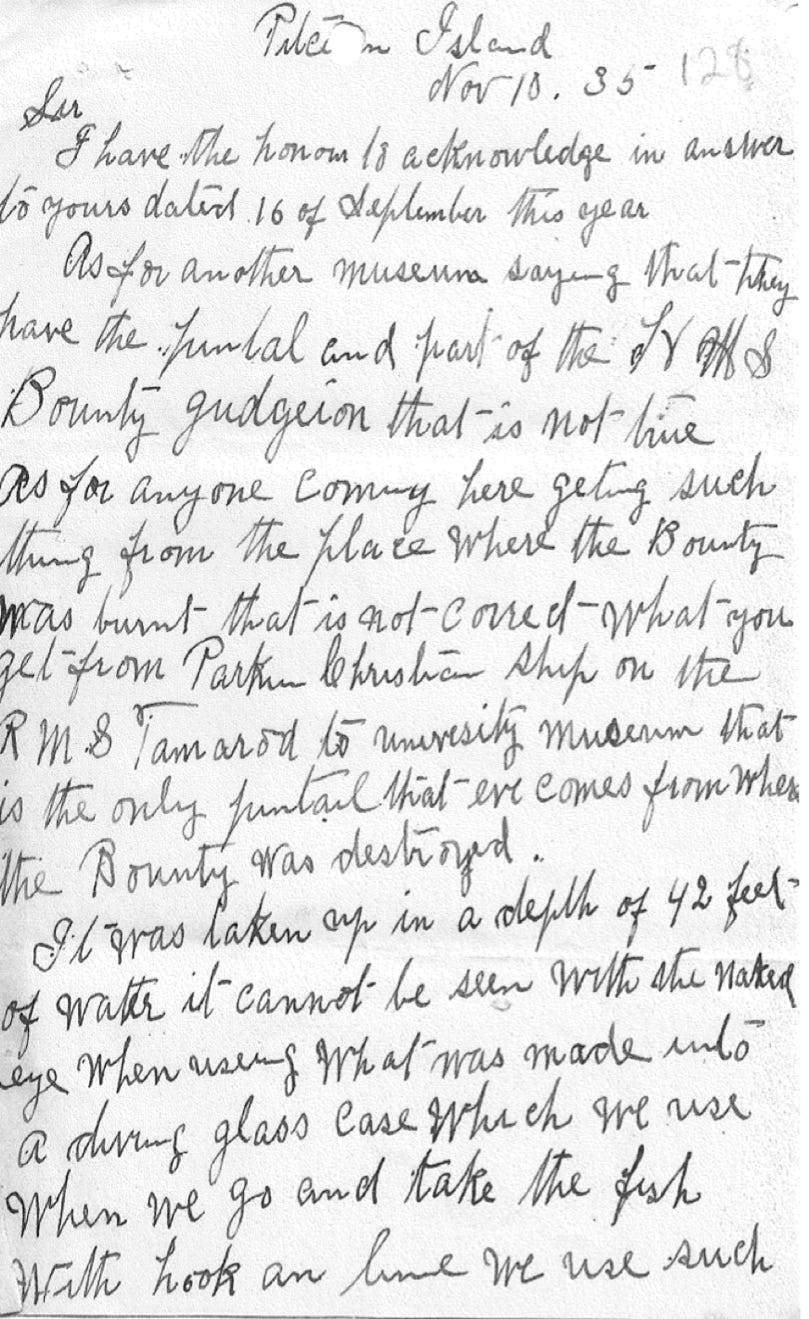 Pitc n Island
Nov 10. 35 128
Sir
I have the honour to acknowledge in answer
to yours dated 16 of September this year
As for another museum saying that they
have the pintal and part of the H M S
Bounty gudgeion that is not true
As for anyone coming here geting such
thing from the place where the Bounty
was burnt that is not correct what you
get from Parkin Christian ship on the
R M S Tamarod to univesity museum that
is the only pintail that ever comes from where
the Bounty was destroyed.
It was taken up in a depth of 42 feet
of water it cannot be seen with the naked
eye when useing what was made into
a diving glass case which we use
when we go and take the fish
with hook an line we use such